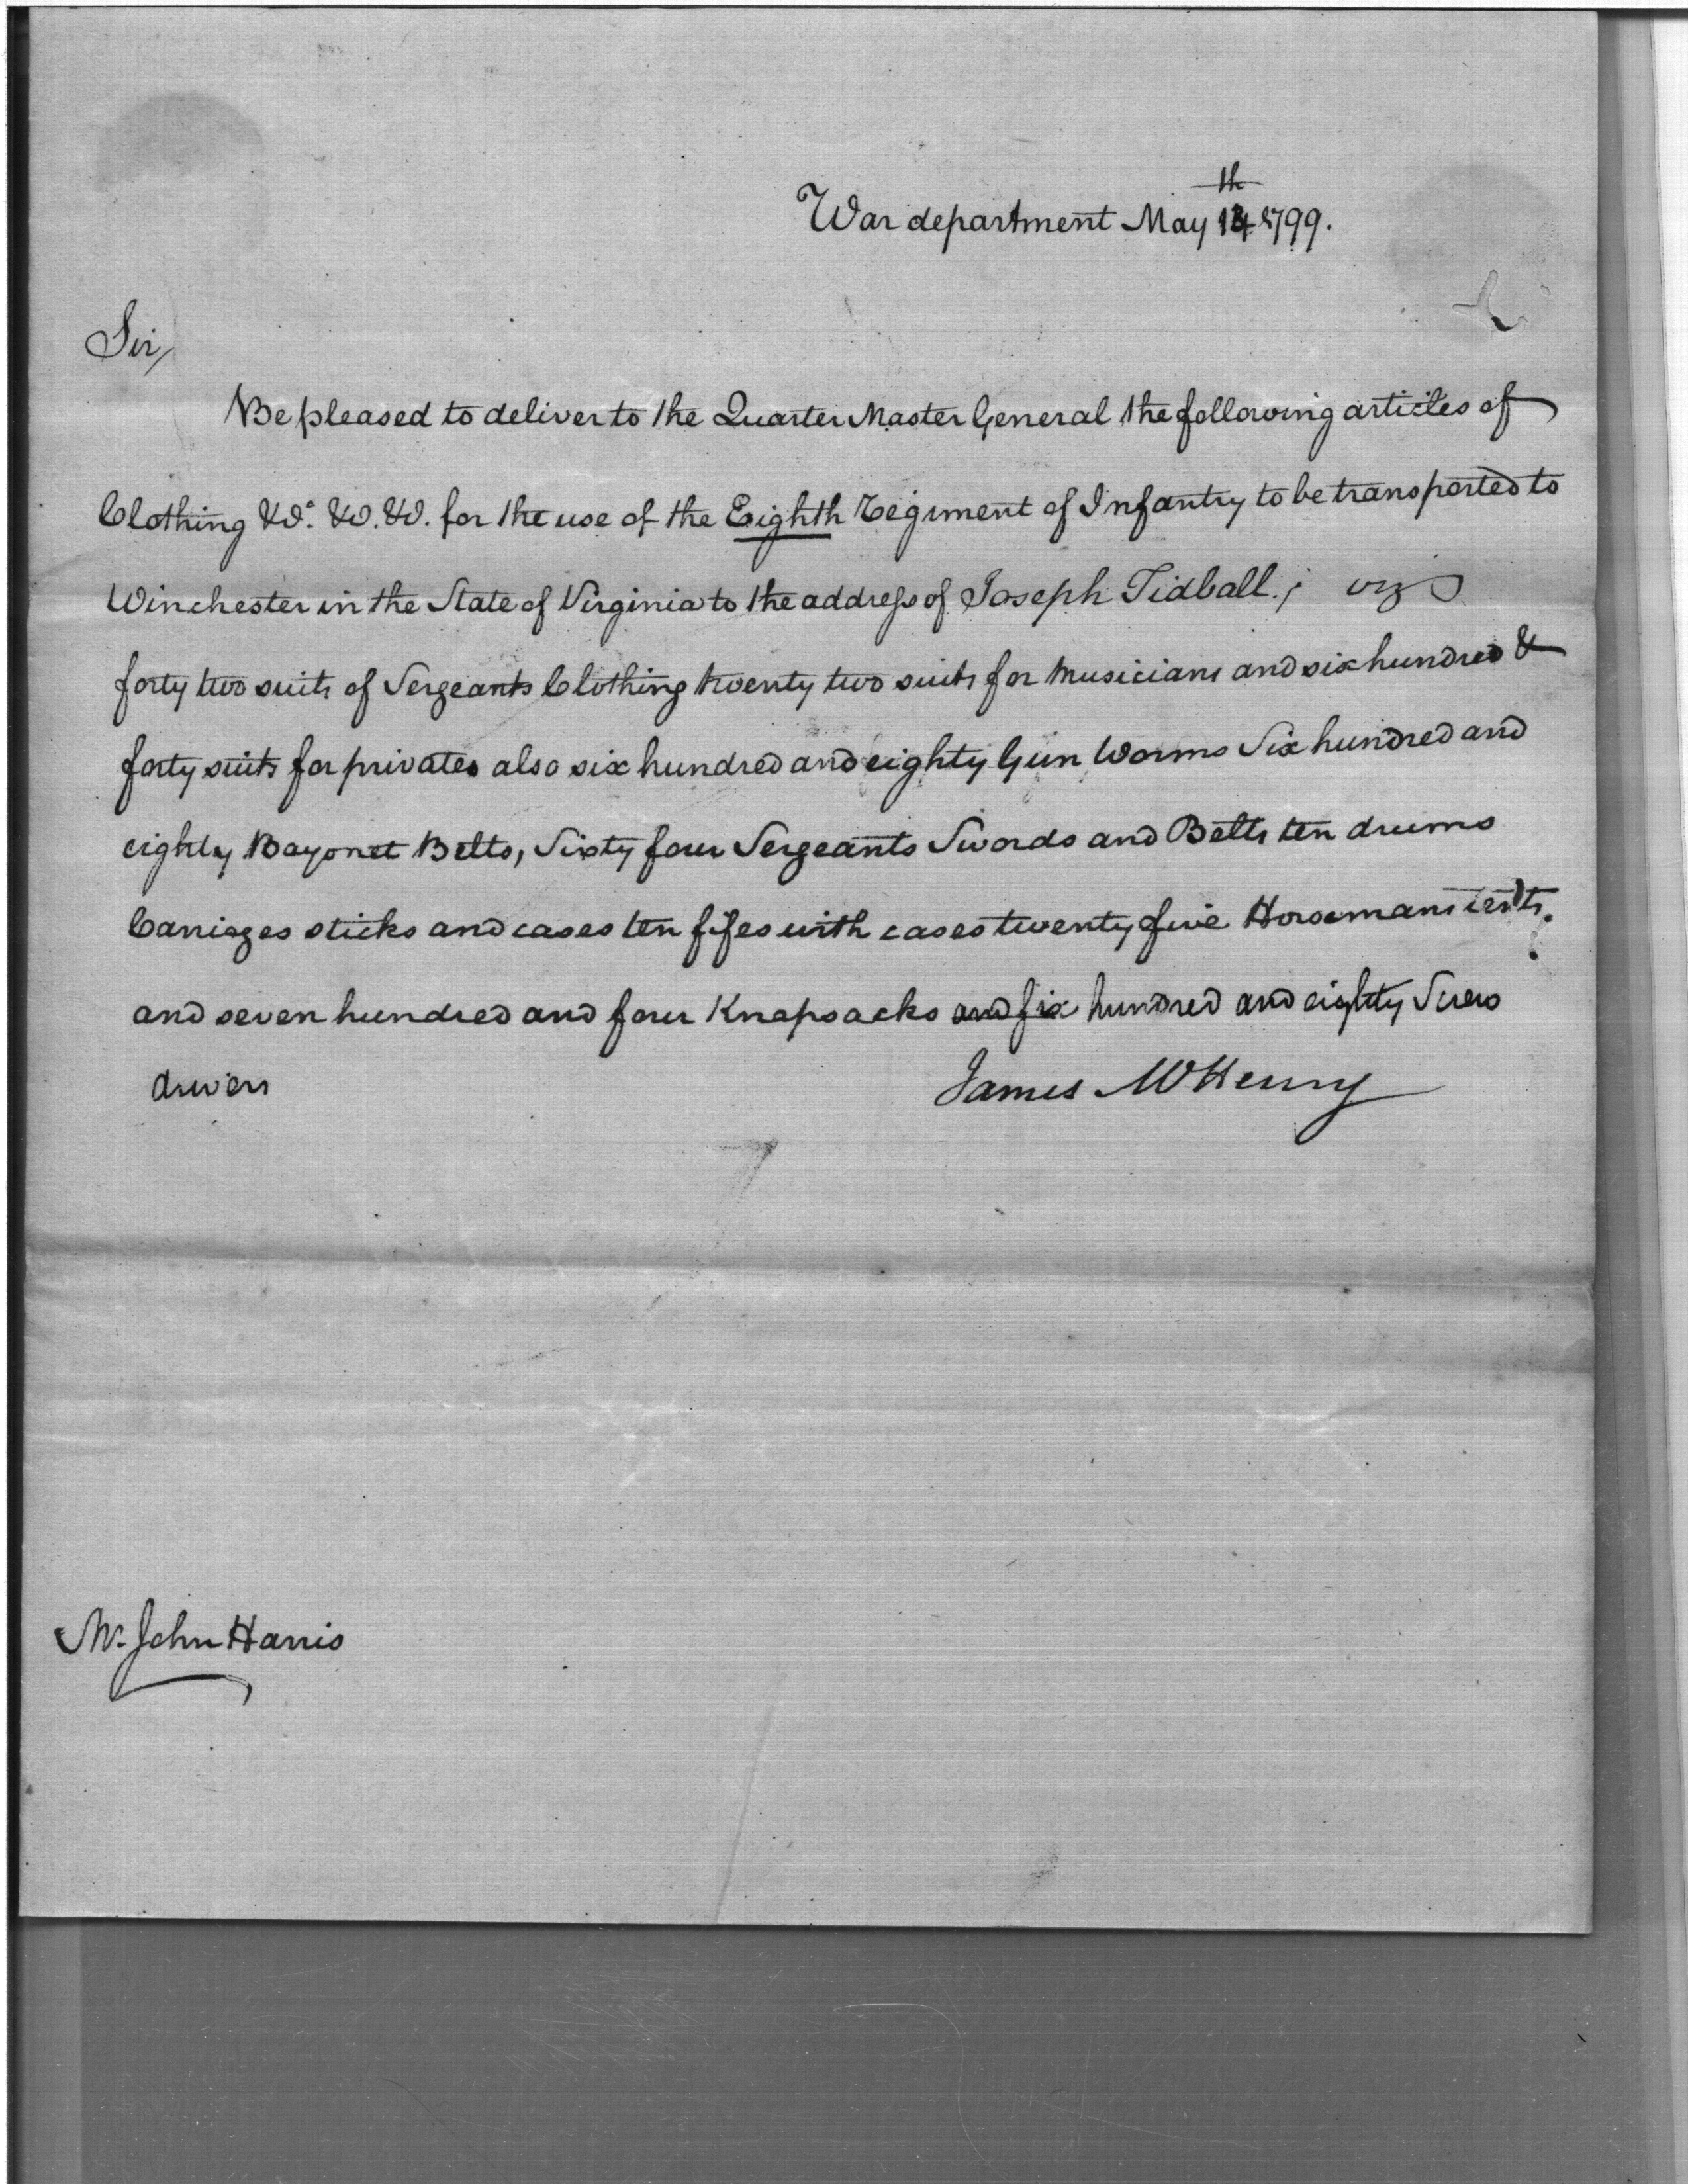 War department May 14th 1799.
Sir,
Be pleased to deliver to the Quarter Master General the following articles of
Clothing &c. &c. &c. for the use of the Eighth Regiment of Infantry to be transported to
Winchester in the State of Virginia to the address of Joseph Tidball.; viz
forty two suits of Sergeants Clothing twenty two suits for Musicians and six hundred &
forty suits for privates also six hundred and eighty Gun Worms Six hundred and
eighty Bayonet Belts, Sixty four Sergeants Swords and Belts ten drums
Carriages sticks and cases ten fifes with cases twenty five Horsemans tents.
and seven hundred and four Knapsacks and six hundred and eighty Screw
drivers
James McHenry
Mr. John Harris